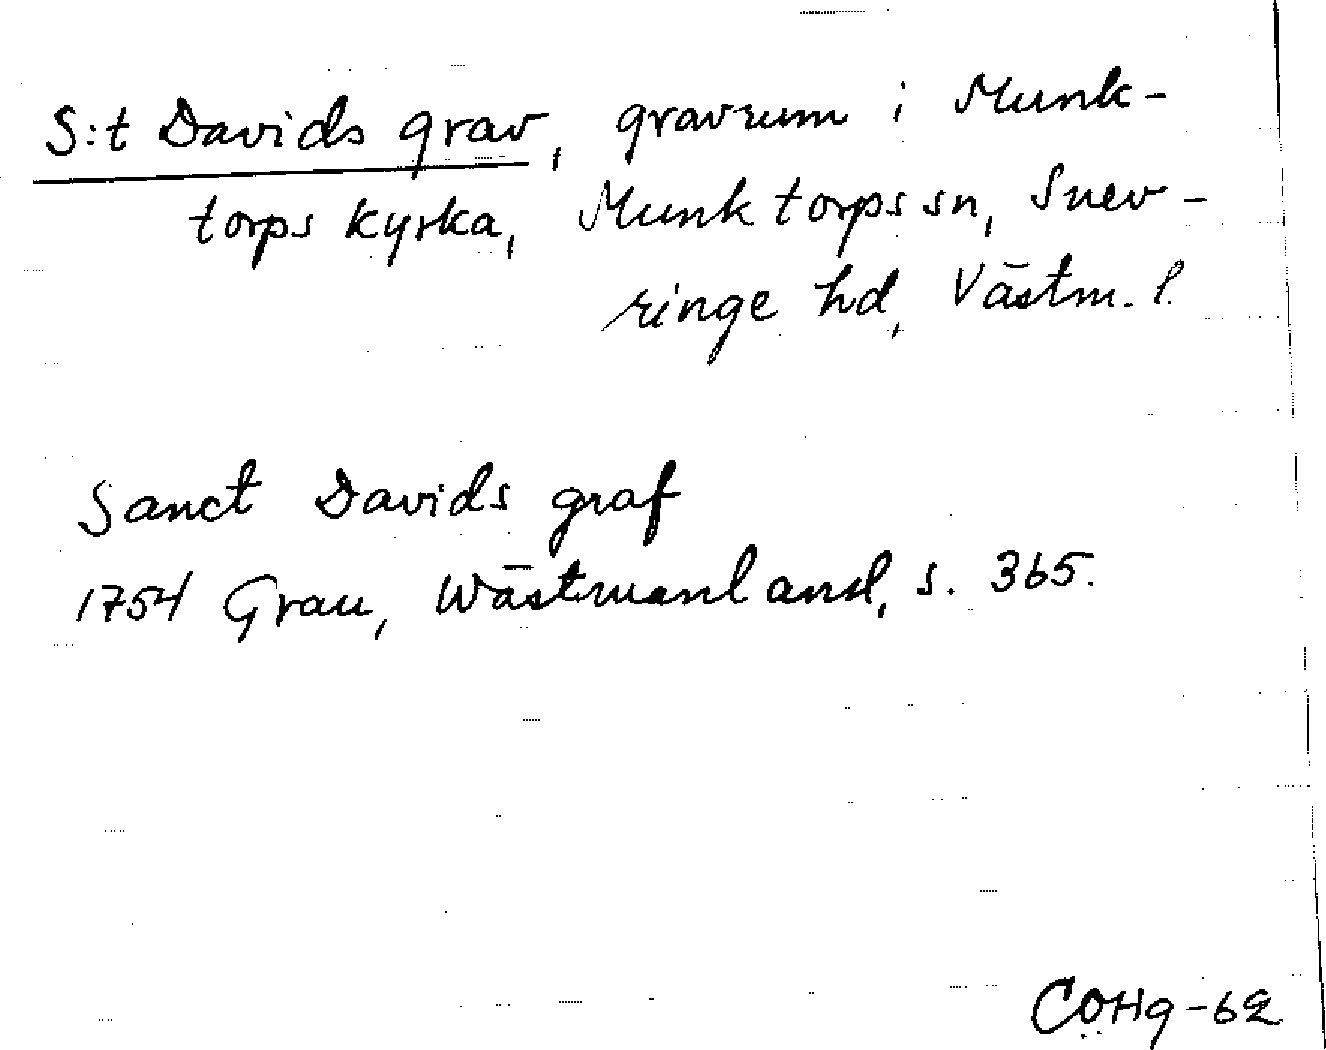 S:t Davids grav, gravrum i Munk-
torps kyrka, Munktorps sn, Snev-
ringe hd, Västm. l.
Sanct Davids graf
1754 Grau, Wästmanland, s. 365.
COHg-62